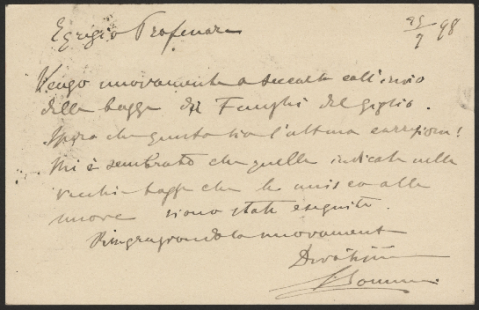 25/9 98
Egregio Professore
Vengo nuovamente a seccarla coll'invio
della bozza dei Funghi del Giglio.
Spero che questa sia l'ultima correzione!
Mi è sembrato che quelle indicate nella
vecchia bozza che le unisco alla
nuova siano state eseguite.
Ringraziandola nuovamente
Devotissimo
S. Sommier